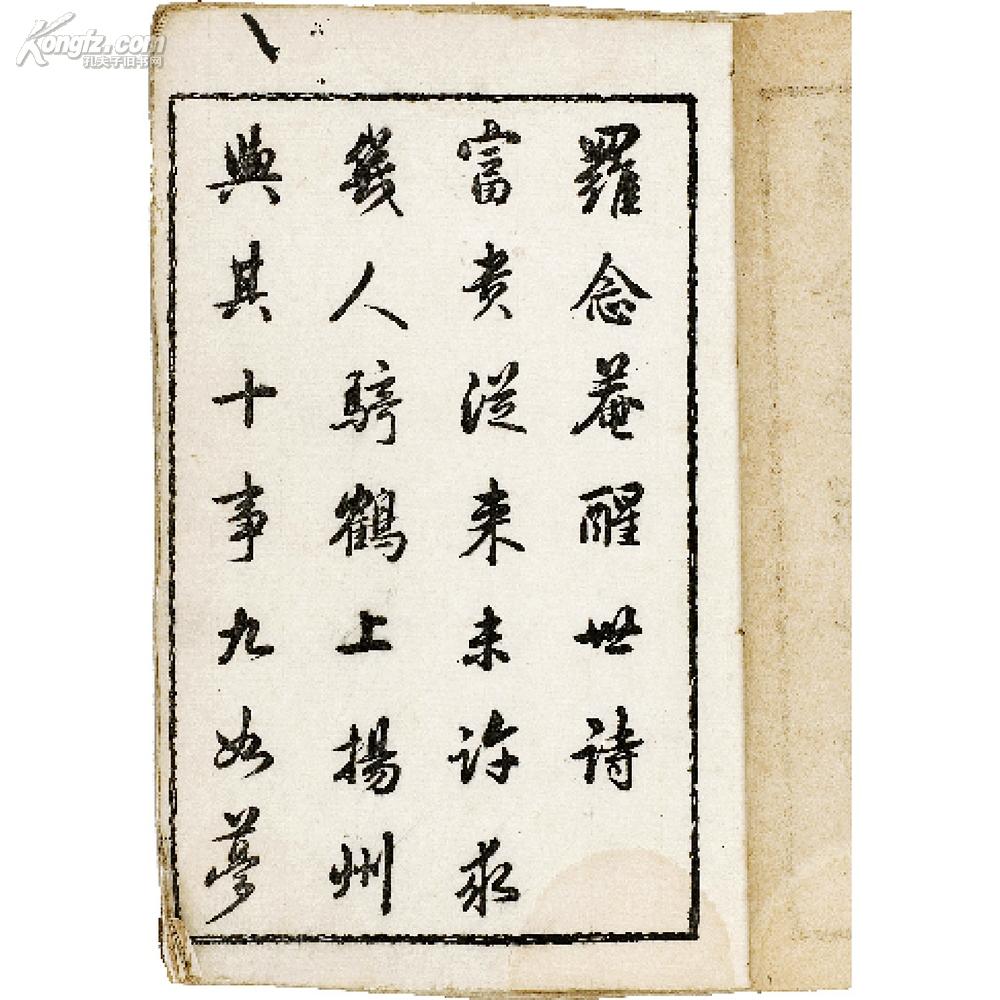 羅念菴醒世詩
富貴從来未許求
幾人騎鶴上揚州
與其十事九如夢
Kongfz.com
孔夫子旧书网